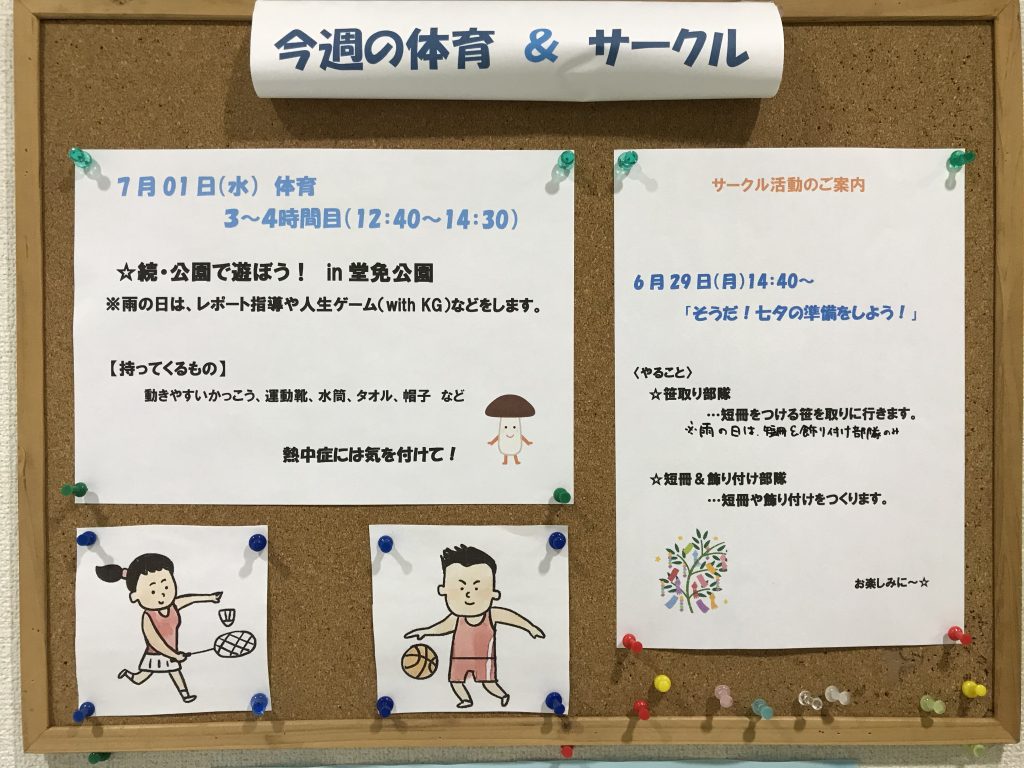 今週の体育 & サークル
7月01日(水) 体育
3〜4時間目(12:40〜14:30)
☆続・公園で遊ぼう! in 堂免公園
※雨の日は、レポート指導や人生ゲーム(with KG)などをします。
【持ってくるもの】
動きやすいかっこう、運動靴、水筒、タオル、帽子 など
熱中症には気を付けて!
サークル活動のご案内
6月29日(月)14:40〜
「そうだ!七夕の準備をしよう!」
〈やること〉
☆笹取り部隊
…短冊をつける笹を取りに行きます。
※雨の日は、短冊&飾り付け部隊のみ
☆短冊&飾り付け部隊
…短冊や飾り付けをつくります。
お楽しみに〜☆